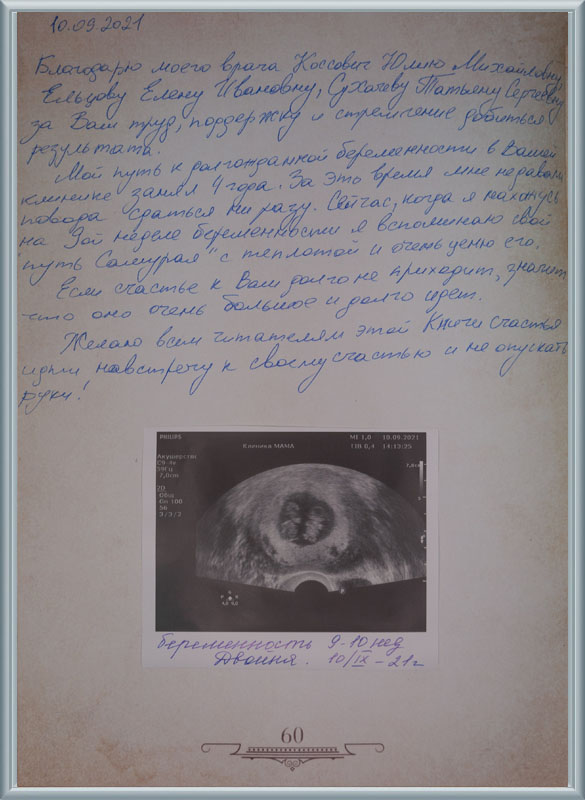 10.09.2021
Благодарю моего врача Коссович Юлию Михайловну,
Ельцову Елену Ивановну, Сухачеву Татьяну Сергеевну
за Ваш труд, поддержку и стремление добиться
результата.
Мой путь к долгожданной беременности в Вашей
клинике занял 4 года. За это время мне не давали
повода сдаться ни разу. Сейчас, когда я нахожусь
на 9ой неделе беременности я вспоминаю свой
"путь Самурая" с теплотой и очень ценю его.
Если счастье к Вам долго не приходит, значит
что оно очень большое и долго идет.
Желаю всем читателям этой Книги счастья
идти навстречу к своему счастью и не опускать
руки!
PHILIPS
MI 1,0 10.09.2021
Клиника МАМА
TIB 0,4 14:13:35
Акушерство
C9-4v
39Гц
7,0cm
2D
Общ
Дн 100
56
3/3/3
беременность 9-10 нед
Двойня. 10/IX - 21г
60